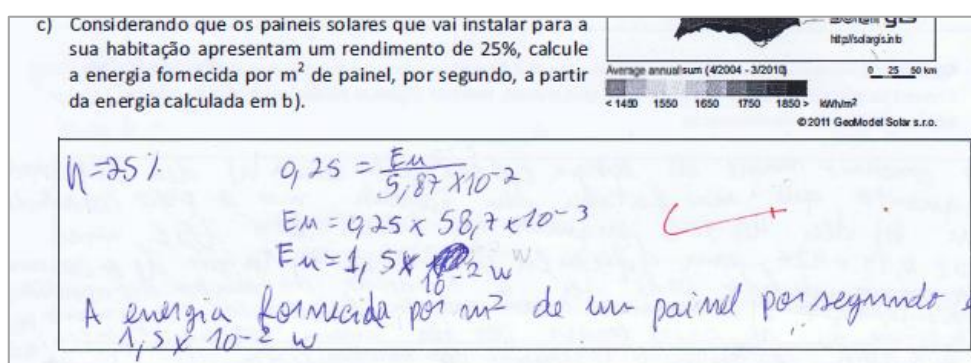 c) Considerando que os paineis solares que vai instalar para a
sua habitação apresentam um rendimento de 25%, calcule
a energia fornecida por m² de painel, por segundo, a partir
da energia calculada em b).
http://solargis.info
Average annual sum (4/2004 - 3/2010)
0 25 50 km
< 1450 1550 1650 1750 1850 > kWh/m²
© 2011 GeoModel Solar s.r.o.
η = 25% 0,25 = Eu / 5,87 × 10-2
Eu = 0,25 × 58,7 × 10-3
Eu = 1,5 × 10-2 w
A energia fornecida por m² de um painel por segundo é
1,5 × 10-2 w